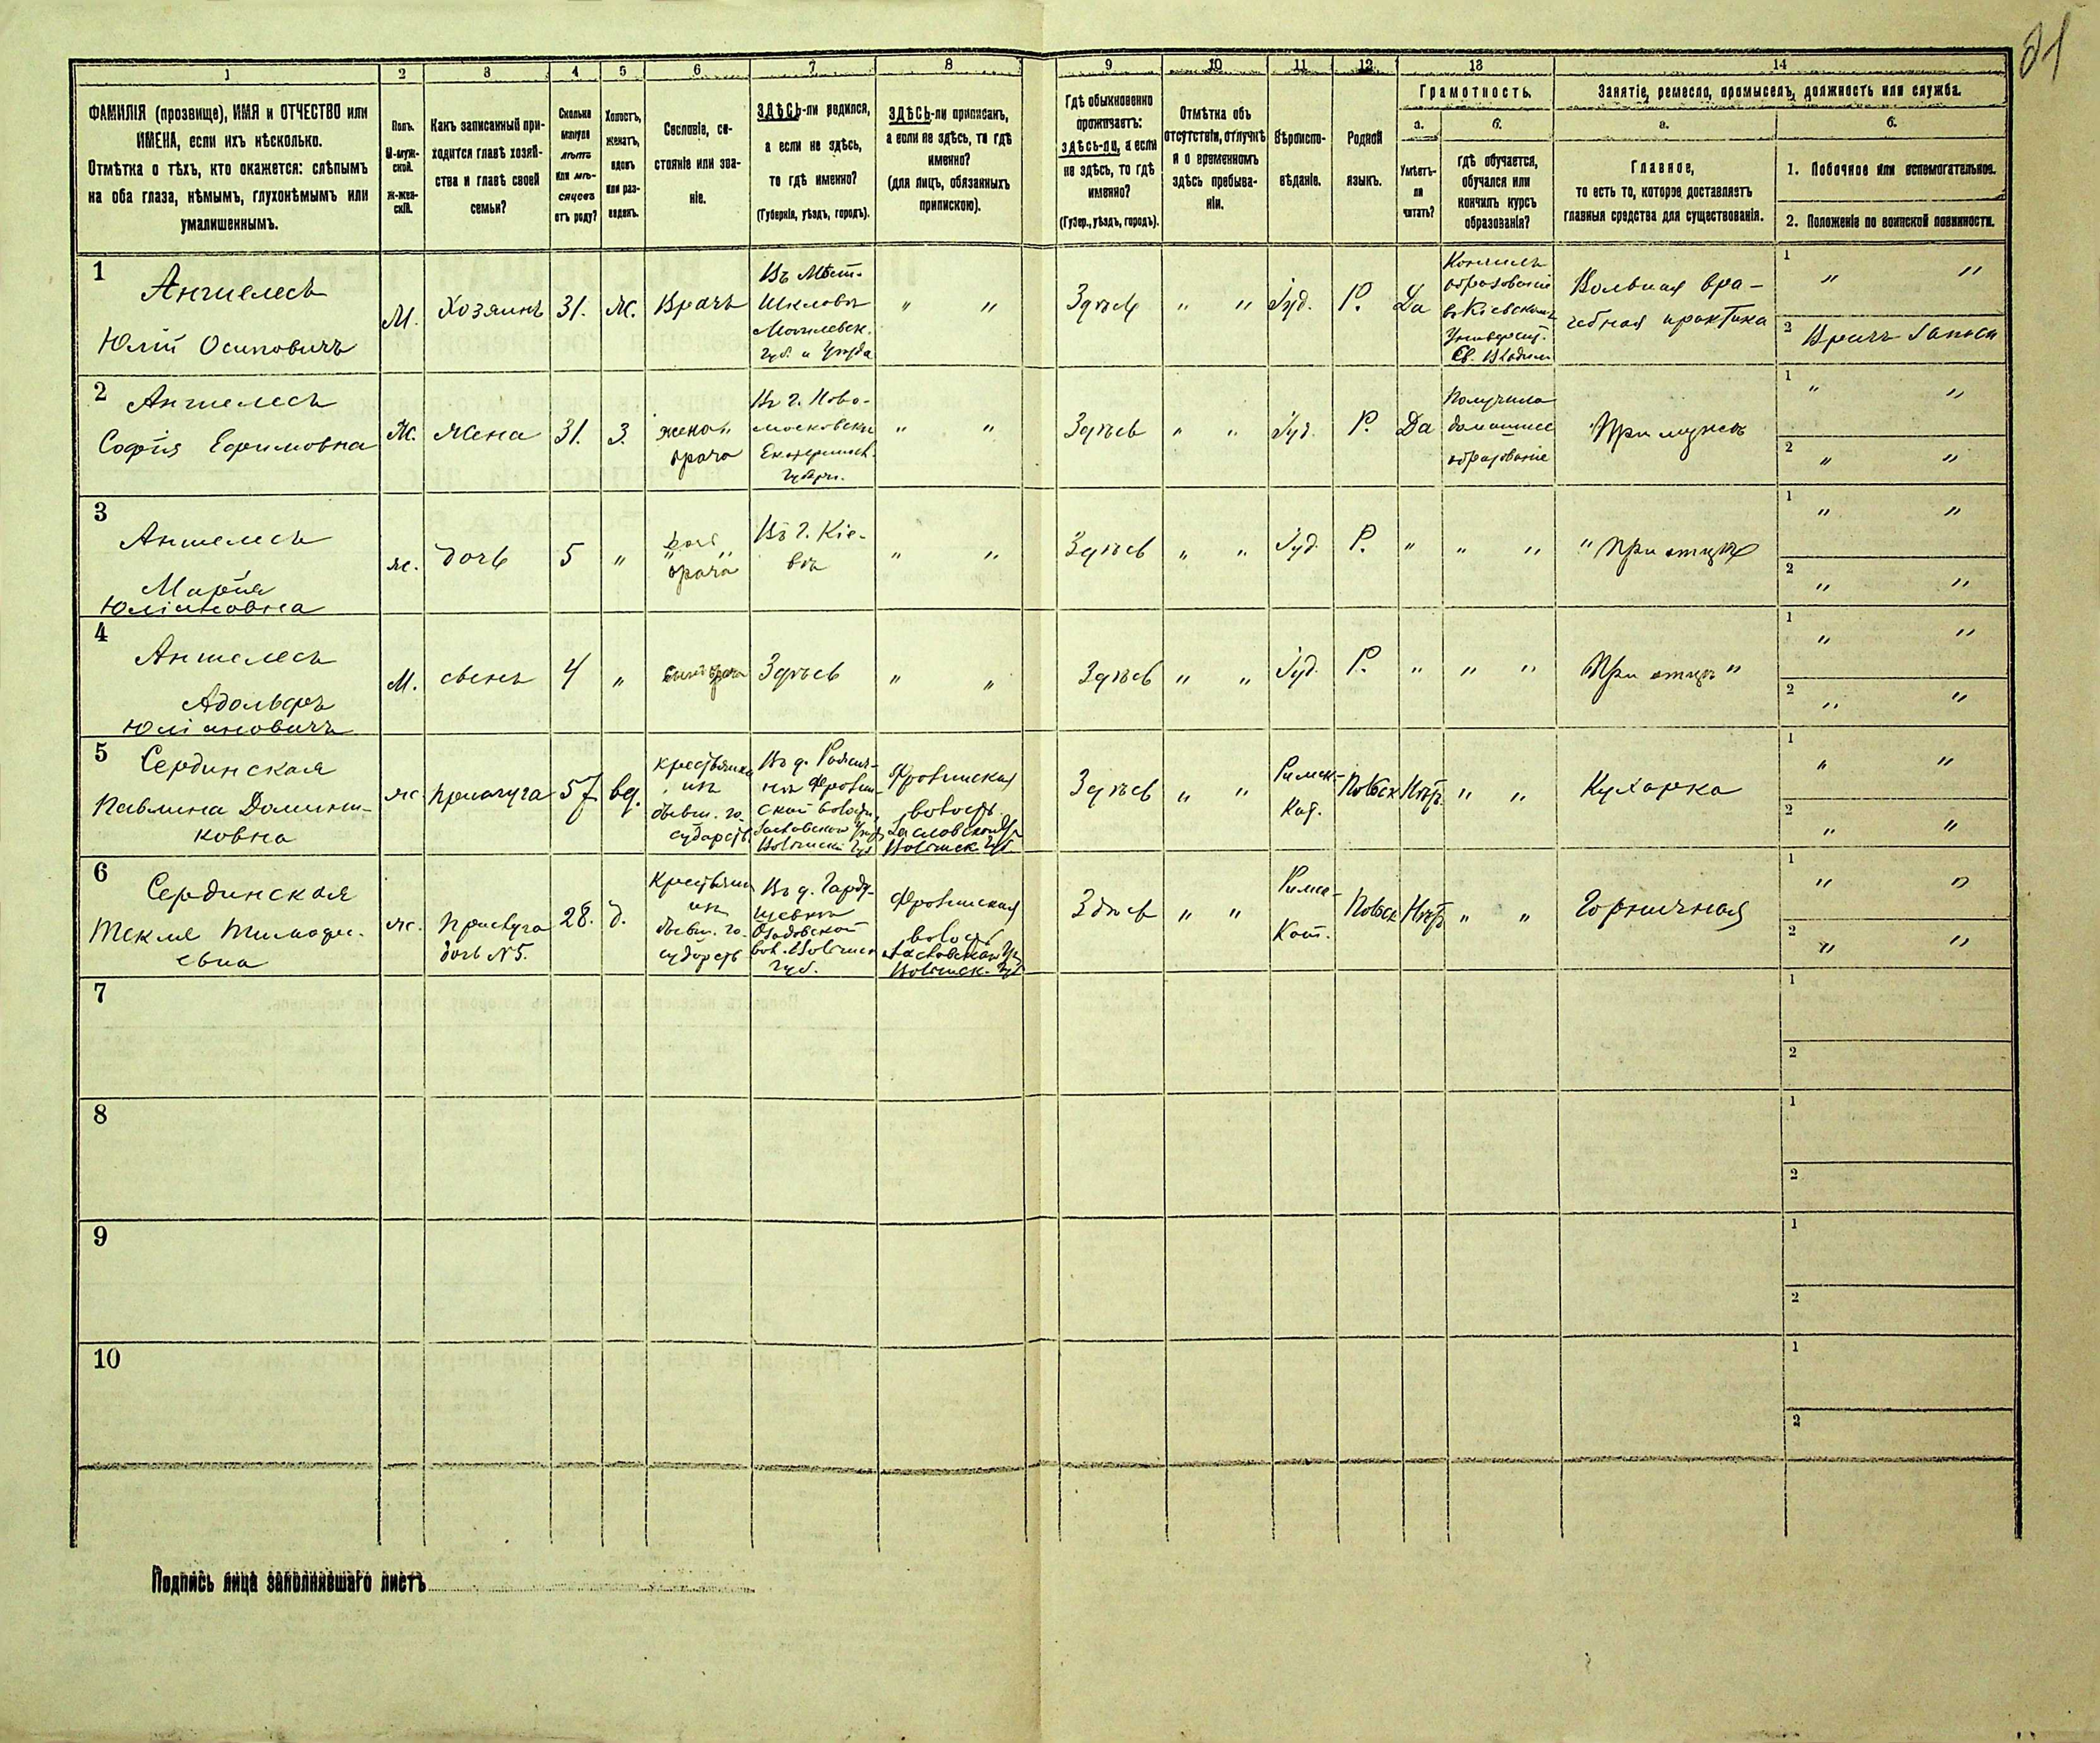 81
1 2 3 4 5 6 7 8 9 10 11 12 13 14
ФАМИЛІЯ (прозвище), ИМЯ и ОТЧЕСТВО или
ИМЕНА, если ихъ нѣсколько.
Отмѣтка о тѣхъ, кто окажется: слѣпымъ
на оба глаза, нѣмымъ, глухонѣмымъ или
умалишеннымъ.
Полъ.
М-муж-
ской.
Ж-жен-
скій.
Какъ записанный при-
ходится главѣ хозяй-
ства и главѣ своей
семьи?
Сколько
минуло
лѣтъ
или мѣ-
сяцевъ
отъ роду?
Холостъ,
женатъ,
вдовъ
или раз-
веденъ.
Сословіе, со-
стояніе или зва-
ніе.
ЗДѢСЬ-ли родился,
а если не здѣсь,
то гдѣ именно?
(Губернія, уѣздъ, городъ).
ЗДѢСЬ-ли приписанъ,
а если не здѣсь, то гдѣ
именно?
(для лицъ, обязанныхъ
припискою).
Гдѣ обыкновенно
проживаетъ:
здѣсь-ли, а если
не здѣсь, то гдѣ
именно?
(Губер., уѣздъ, городъ).
Отмѣтка объ
отсутствіи, отлучкѣ
и о временномъ
здѣсь пребыва-
ніи.
Вѣроиспо-
вѣданіе.
Родной
языкъ.
Грамотность.
а.
Умѣетъ-
ли
читать?
б.
гдѣ обучается,
обучался или
кончилъ курсъ
образованія?
Занятіе, ремесло, промыселъ, должность или служба.
а.
Главное,
то есть то, которое доставляетъ
главныя средства для существованія.
б.
1. Побочное или вспомогательное.
2. Положеніе по воинской повинности.
1
Аншелесъ
Юлій Осиповичъ
М.
Хозяинъ
31.
Ж.
Врачъ
Въ Мѣст.
Шкловѣ
Могилевск.
Губ. и Уѣзда
" "
Здѣсь
" "
Іуд.
Р.
Да
Кончилъ
образованіе
въ Кіевскомъ
Университ.
Св. Владим
Вольная вра-
чебная практика
1 " "
2 Врачъ Запаса
2
Аншелесъ
Софія Ефимовна
Ж.
Жена
31.
З.
жена
врача
Въ г. Ново-
московскѣ
Екатеринос.
Губерн.
" "
Здѣсь
" "
Іуд.
Р.
Да
Получила
домашнее
образованіе
При мужѣ
1 " "
2 " "
3
Аншелесъ
Марія
Юліановна
ж.
дочь
5
"
врача
Въ г. Кіе-
вѣ
" "
Здѣсь
" "
Іуд.
Р.
"
" "
" При отцѣ
1 " "
2 " "
4
Аншелесъ
Адольфъ
Юліановичъ
М.
сынъ
4
"
сынъ врача
Здѣсь
" "
Здѣсь
" "
Іуд.
Р.
"
" "
При отцѣ "
1 " "
2 " "
5
Сердинская
Павлина Домини-
ковна
ж.
прислуга
57
вд.
крестьянка
изъ
бывш. го-
сударств.
Въ д.
ской волости,
Заславскаго Уѣзд
Волынск. Губ
волость
Заславскаго У.
Волынск. Губ.
Здѣсь
" "
Римск-
Кат.
Польск
Нѣтъ
" "
Кухарка
1 " "
2 " "
6
Сердинская
Текля
ж.
Прислуга
дочь №5.
28.
д.
Крестьян
изъ
бывш. го-
сударств
Въ д.
вол. Волынск
Губ.
волость
Заславскаго У.
Волынск. Губ
Здѣсь
" "
Римс-
Кат.
Польск
Нѣтъ
" "
Горничная
1 " "
2 " "
7
1
2
8
1
2
9
1
2
10
1
2
Подпись лица заполнявшаго листъ